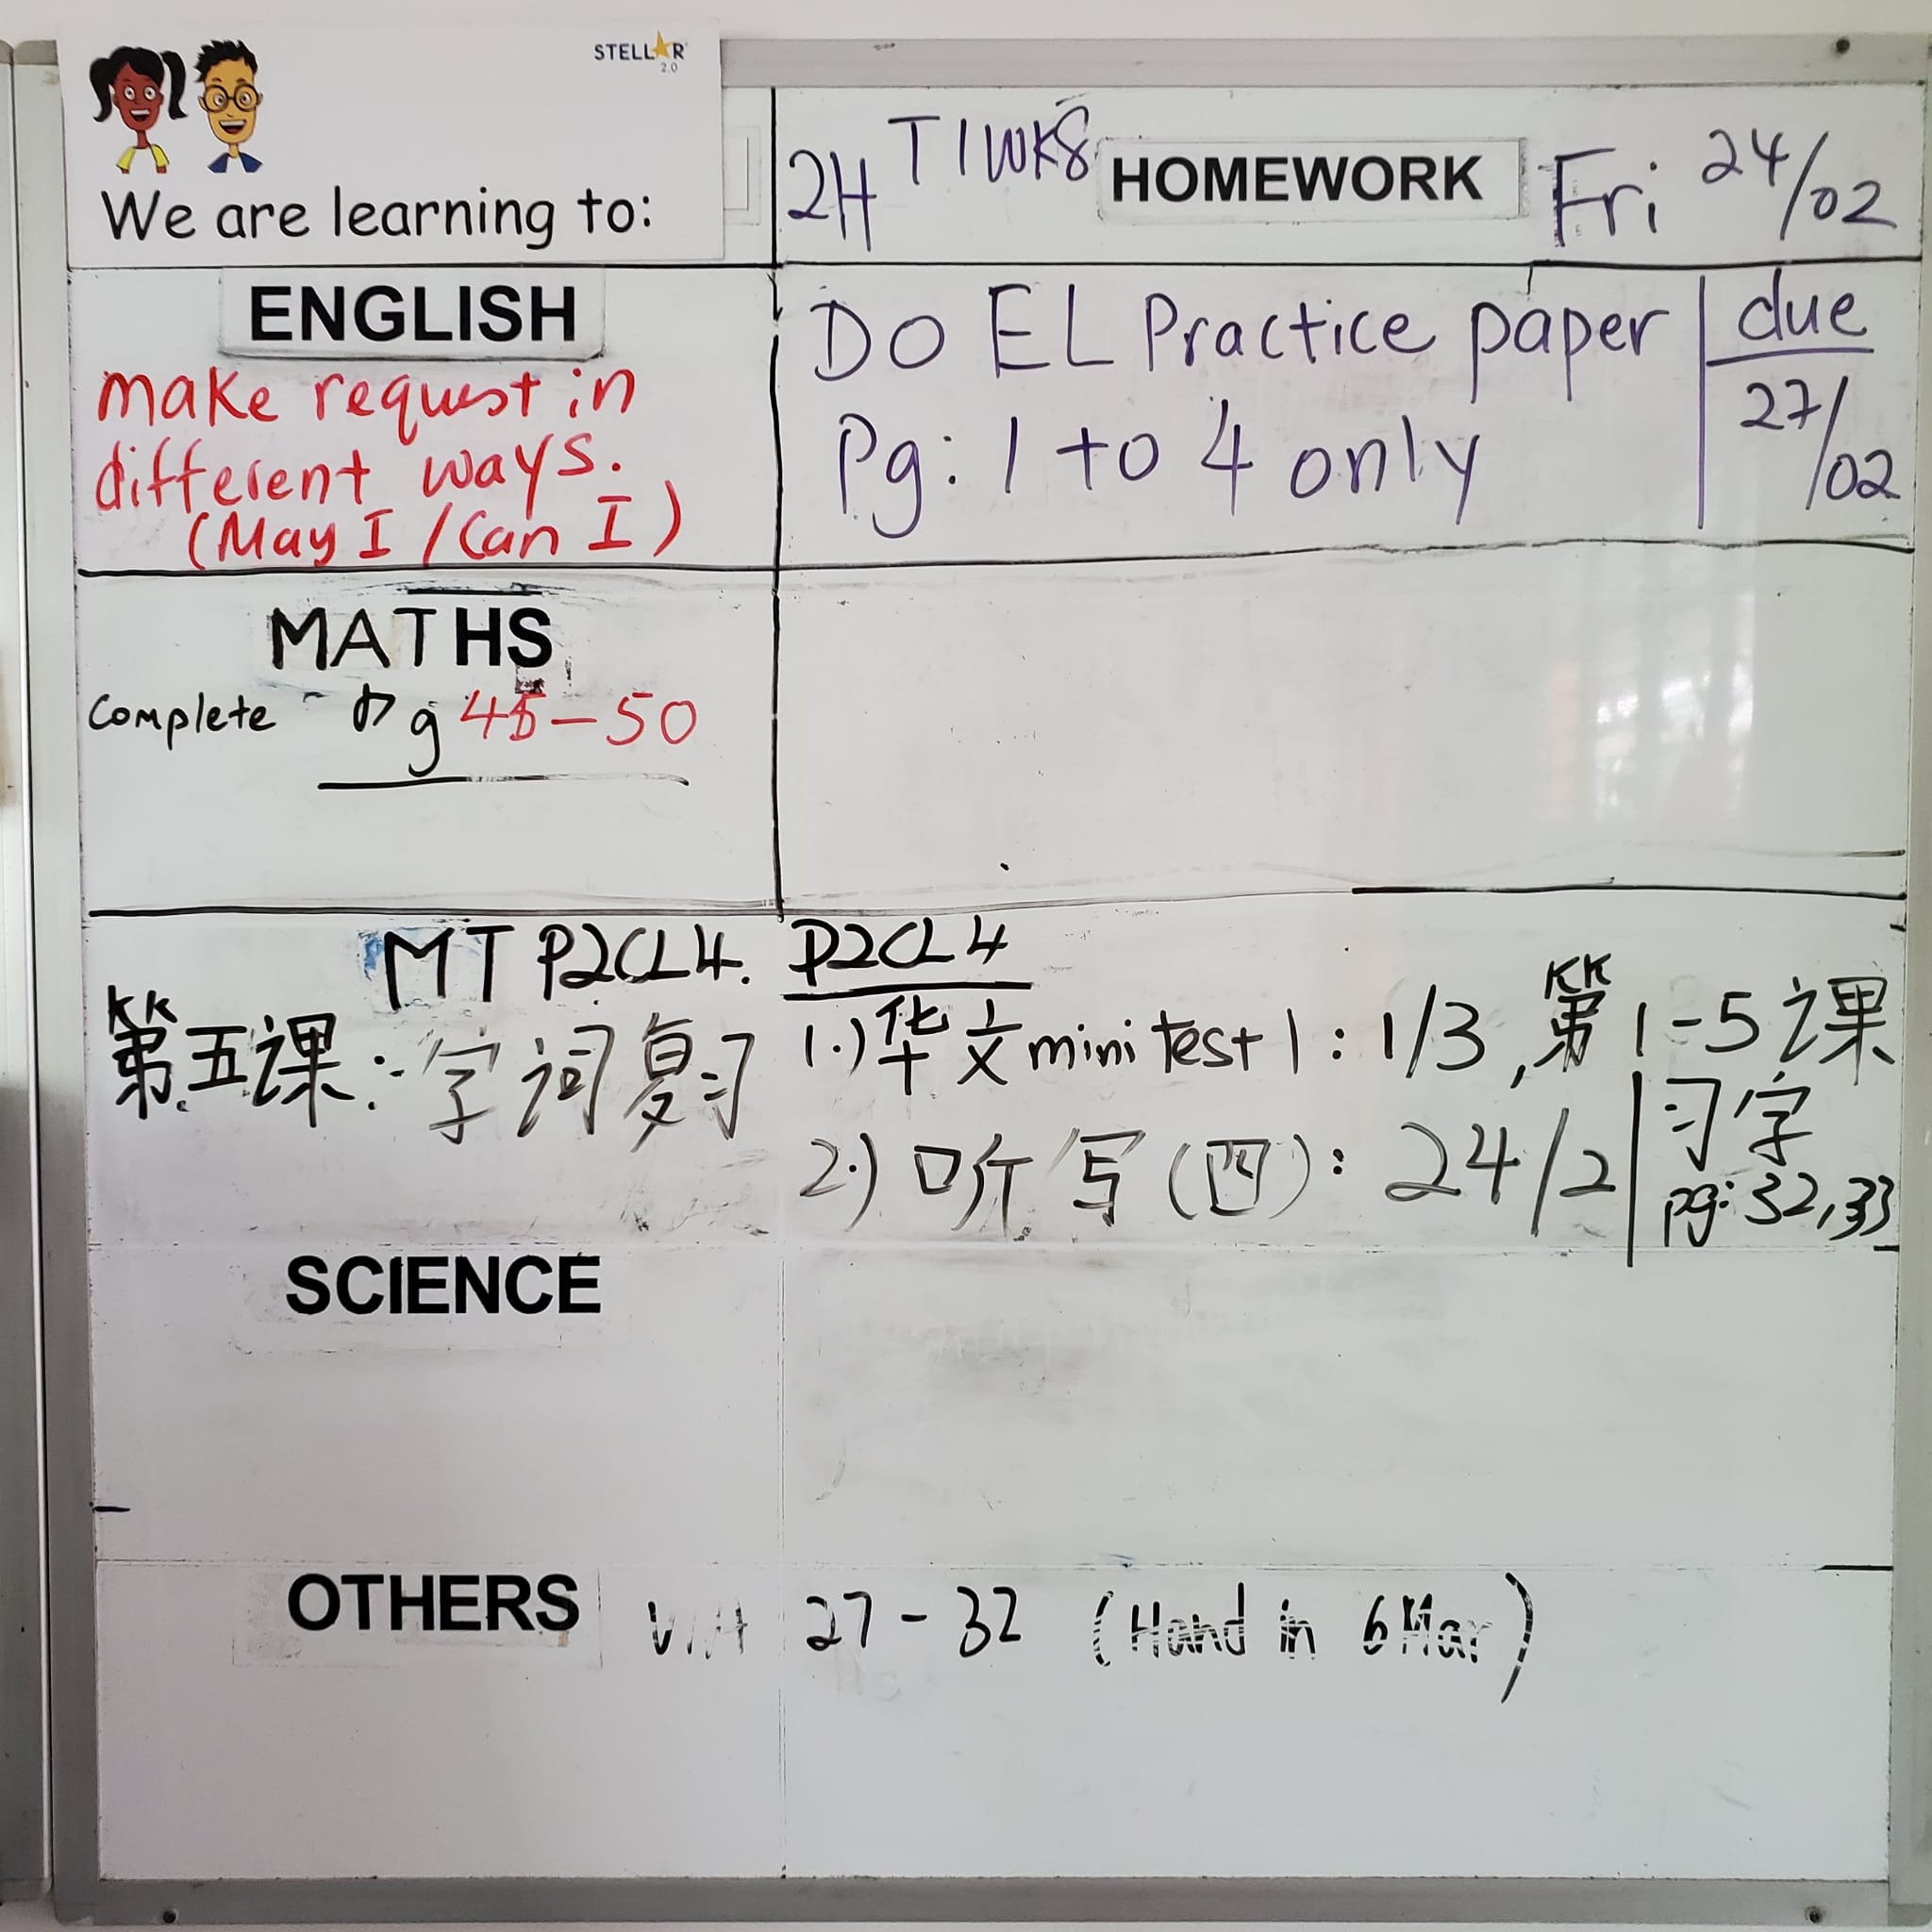 STELLAR
2.0
We are learning to:
2H T1WK8 HOMEWORK Fri 24/02
ENGLISH
make request in
different ways.
(May I / Can I)
Do EL Practice paper
Pg: 1 to 4 only
due
27/02
MATHS
Complete pg 45-50
MT P2CL4.
第五课:字词复习
P2CL4
1.) 华文 mini test 1: 1/3, 第1-5课
2.) 听写(四): 24/2
习字
pg: 32,33
SCIENCE
OTHERS
27-32 (Hand in 6 Mar)